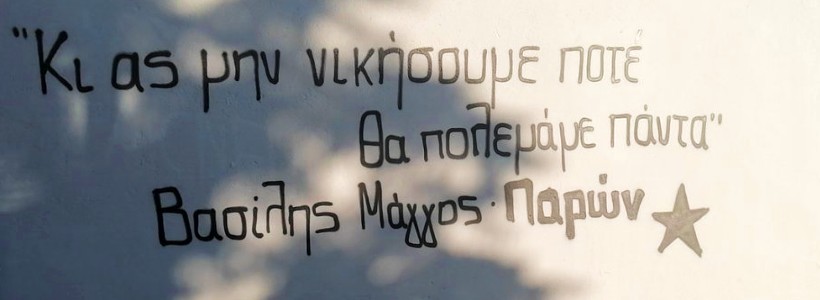 "Κι ας μην νικήσουμε ποτέ
θα πολεμάμε πάντα"
Βασίλης Μάγγος · Παρών